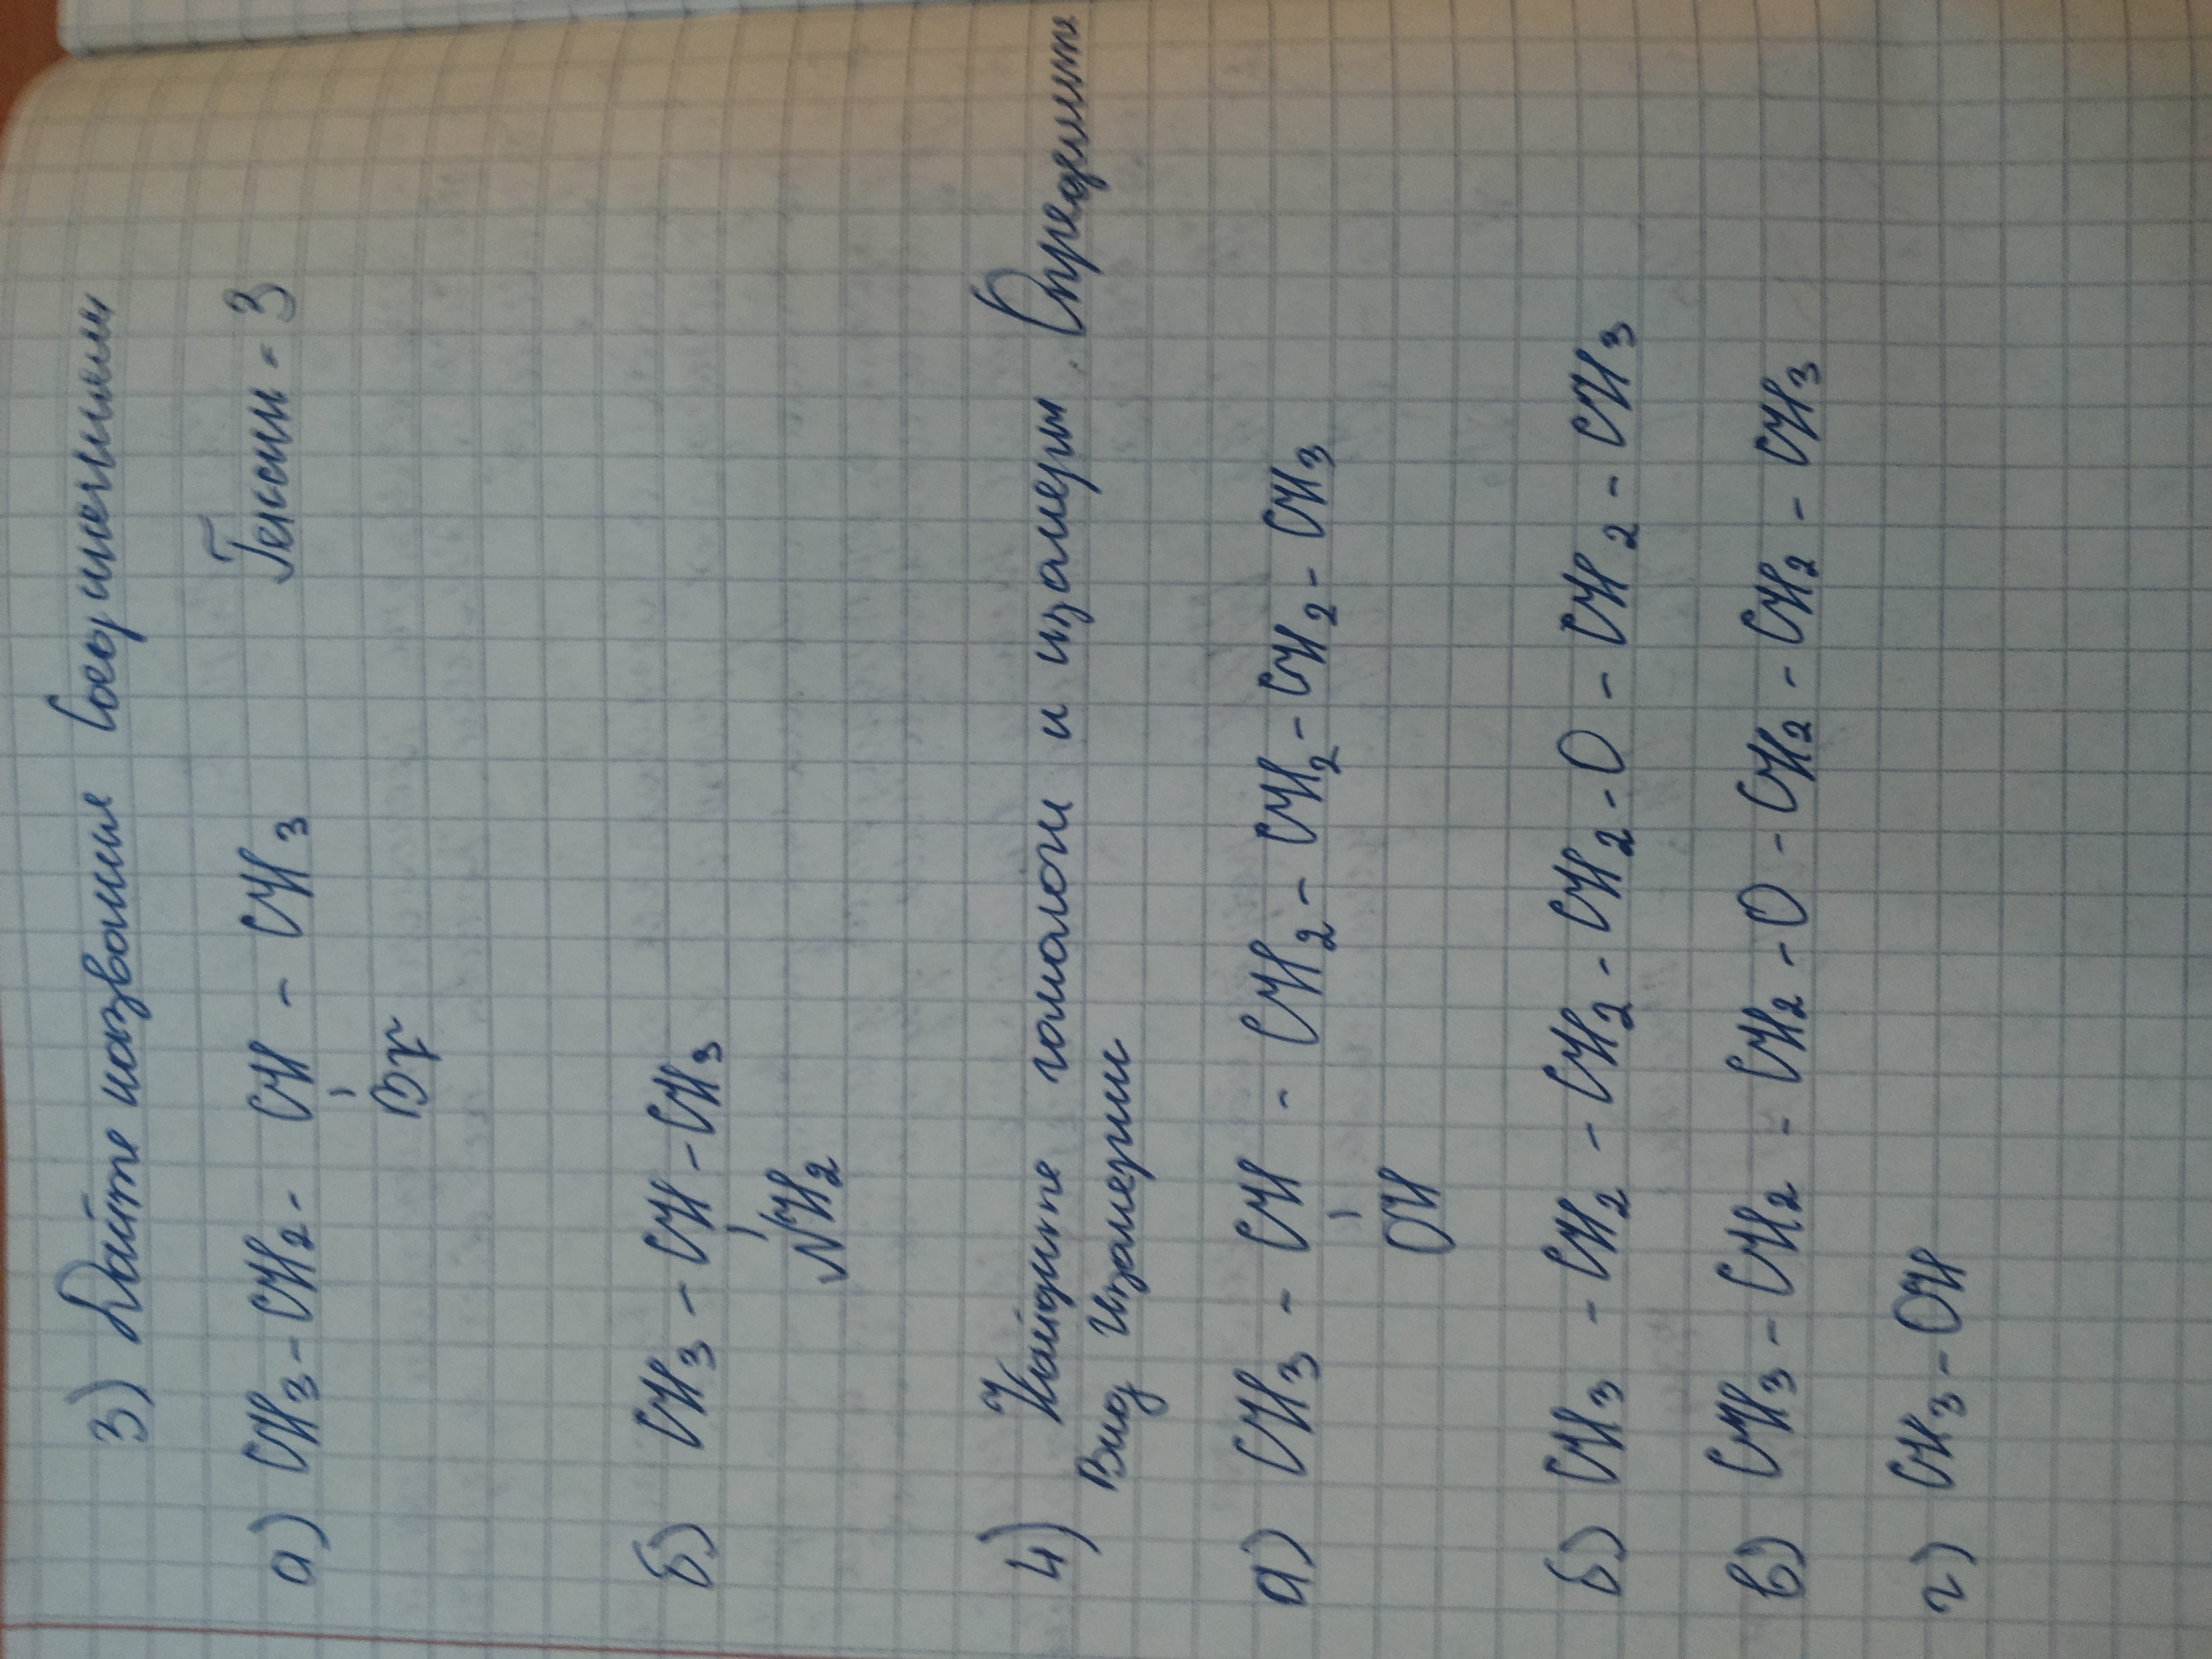 3) Дайте название соединениям
а) CH3-CH2- CH - CH3 Гексин-3
Br
б) CH3 - CH - CH3
NH2
4) Найдите гомологи и изомеры. Определите
Вид изомерии
а) CH3 - CH - CH2 - CH2 - CH2 - CH3
OH
б) CH3 - CH2 - CH2 - CH2 - O - CH2 - CH3
в) CH3 - CH2 - CH2 - O - CH2 - CH2 - CH3
г) CH3 - OH